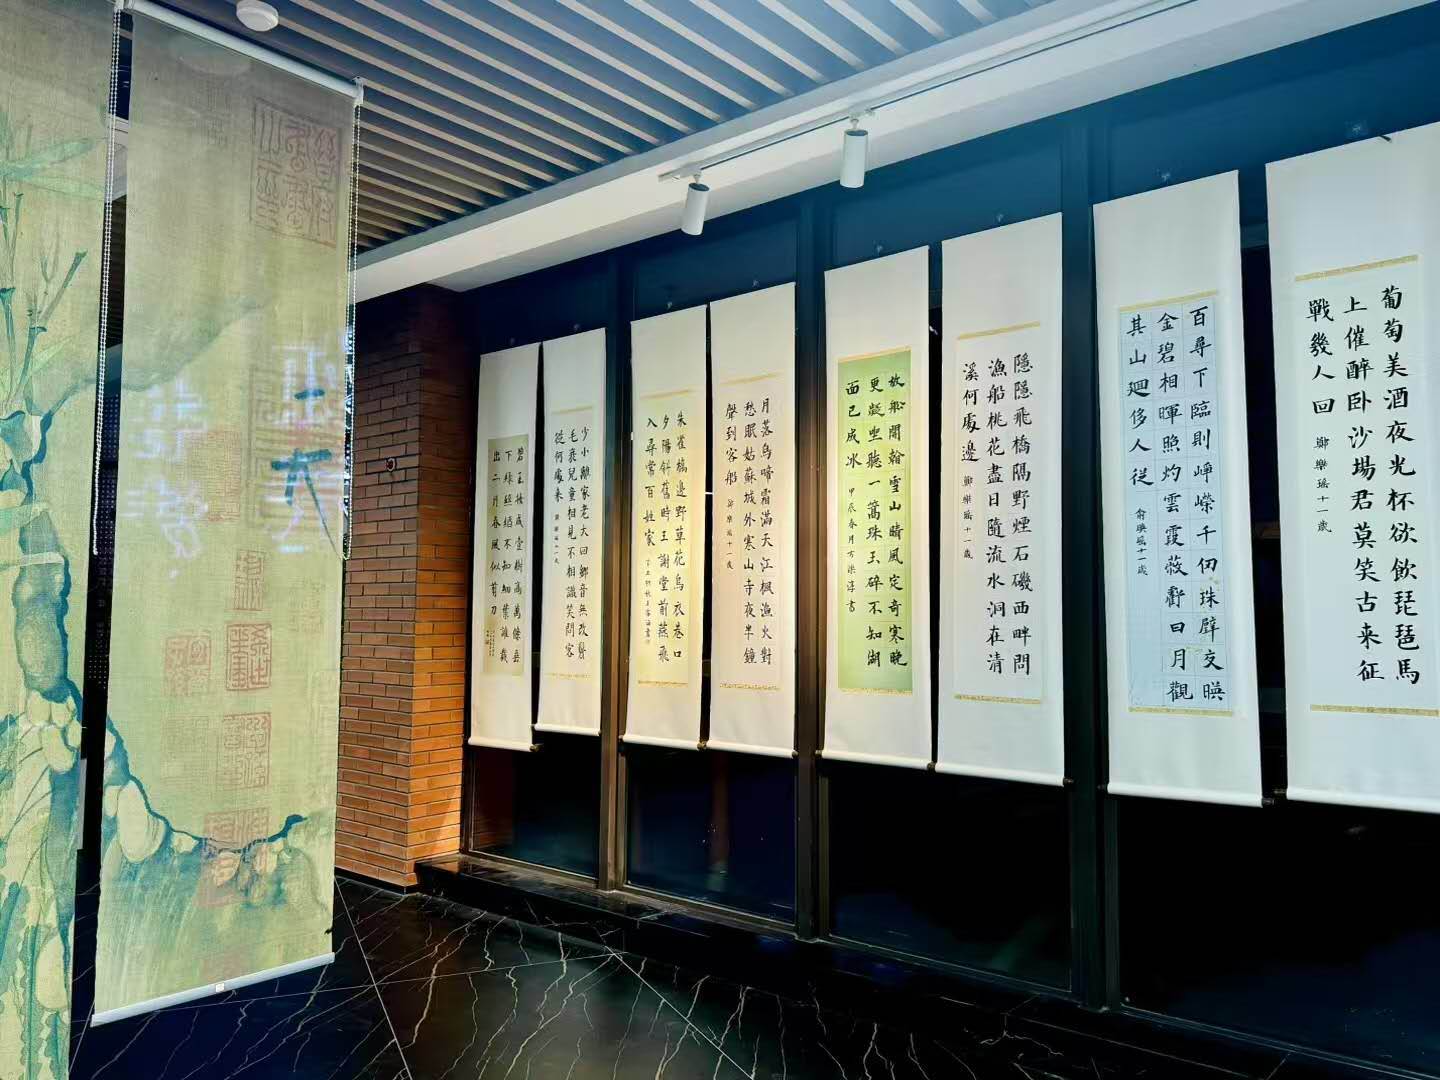 葡萄美酒夜光杯欲飲琵琶馬
上催醉卧沙場君莫笑古来征
戰幾人回 鄭樂瑶十一歲
百尋下臨則崢嶸千仞珠壁交暎
金碧相暉照灼雲霞蔽虧日月觀
其山廻侈人從 俞暎瑶十一歲
隱隱飛橋隔野煙石磯西畔問
漁船桃花盡日隨流水洞在清
溪何處邊 鄭樂瑶十一歲
放船開看雪山晴風定奇寒晚
更凝坐聽一篙珠玉碎不知湖
面已成冰 甲辰春月方樂淳書
月落烏啼霜滿天江楓漁火對
愁眠姑蘇城外寒山寺夜半鐘
聲到客船 鄭樂瑶十一歲
朱雀橋邊野草花烏衣巷口
夕陽斜舊時王謝堂前燕飛
入尋常百姓家
少小離家老大回鄉音無改鬢
毛衰兒童相見不相識笑問客
從何處来
碧玉妝成一樹高萬條垂
下緑絲縧不知細葉誰裁
出二月春風似剪刀